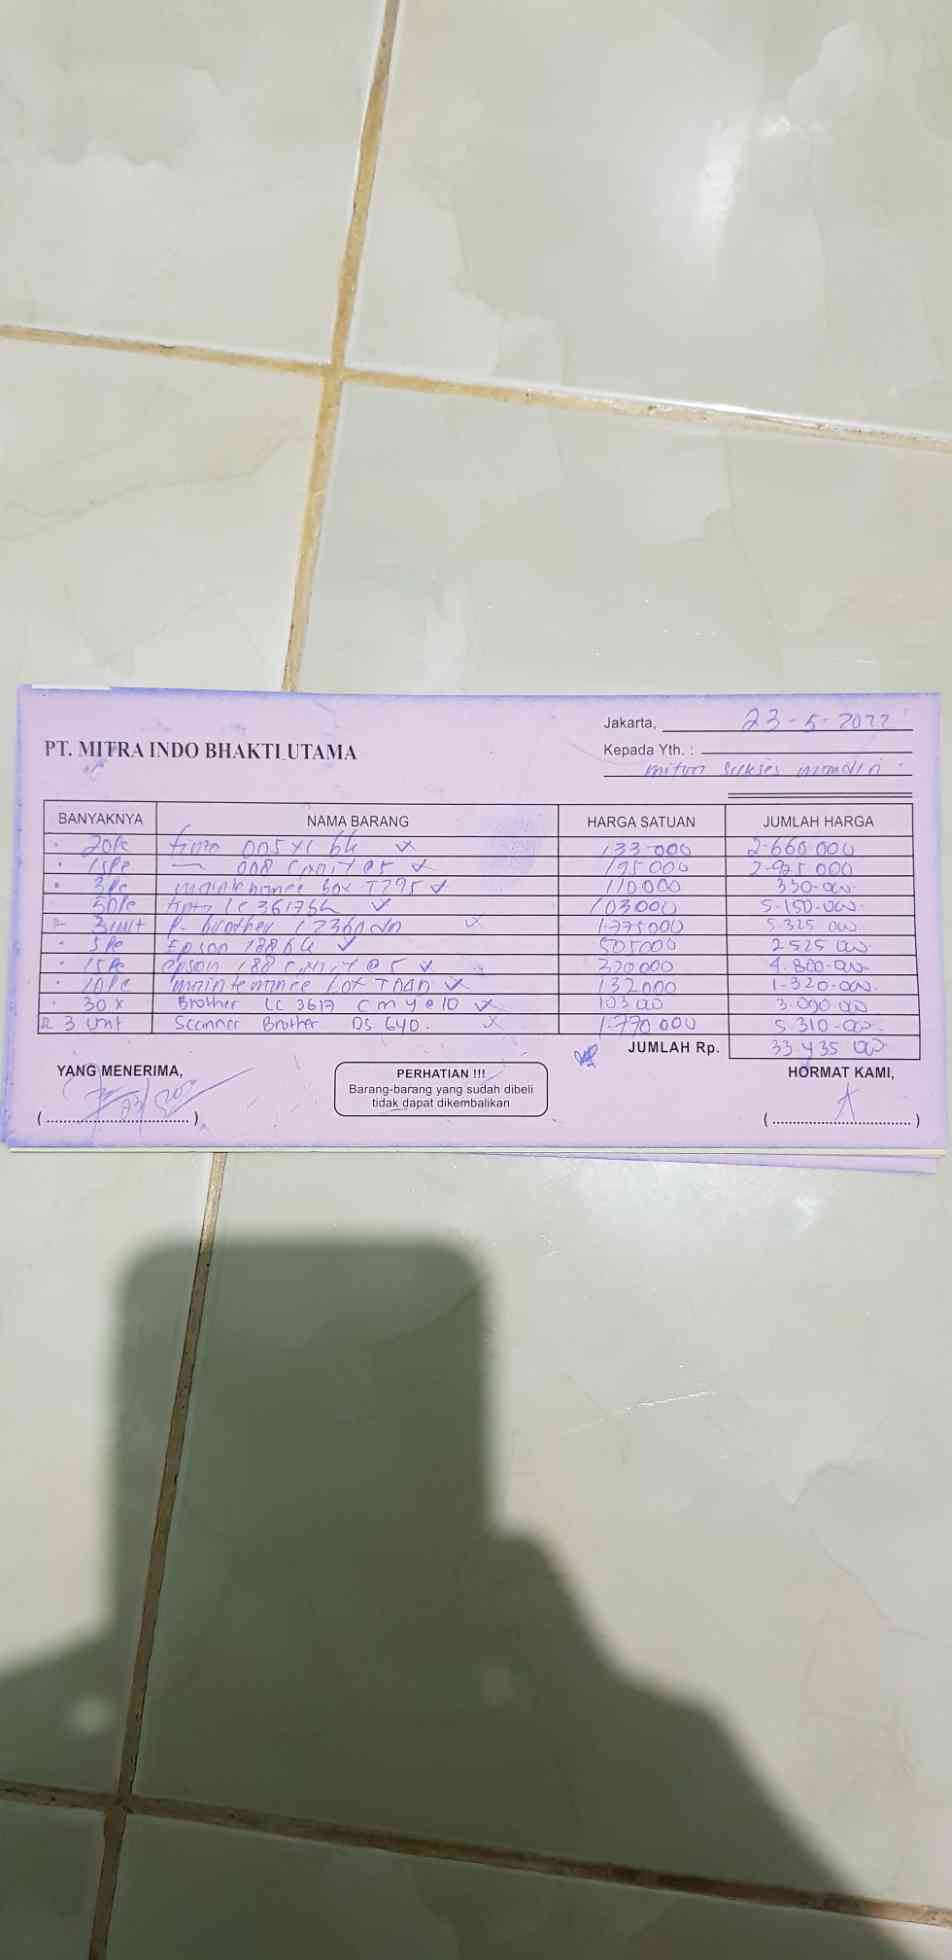 Jakarta, 23-5-2022
PT. MITRA INDO BHAKTI UTAMA
Kepada Yth. :
sukses
BANYAKNYA NAMA BARANG HARGA SATUAN JUMLAH HARGA
20Pc 005 bk 133-000 2-660 000
15Pc 008 @5 195 000 2-925 000
3Pc maintenance box T295 110000 330-000
50Pc LC 3617bk 103000 5-150-000
3unit P. brother 1-775000 5.325 000
5 Pc Epson 188bk 505000 2525 000
15Pc epson 188 @5 320000 4.800-000
10Pc maintenance box 132000 1-320-000
30 x Brother LC 3617 c m y @10 103 000 3.090 000
3 Unit Scanner Brother DS 640. 1-770 000 5.310-000
JUMLAH Rp. 33 435 000
YANG MENERIMA,
PERHATIAN !!!
Barang-barang yang sudah dibeli
tidak dapat dikembalikan
HORMAT KAMI,